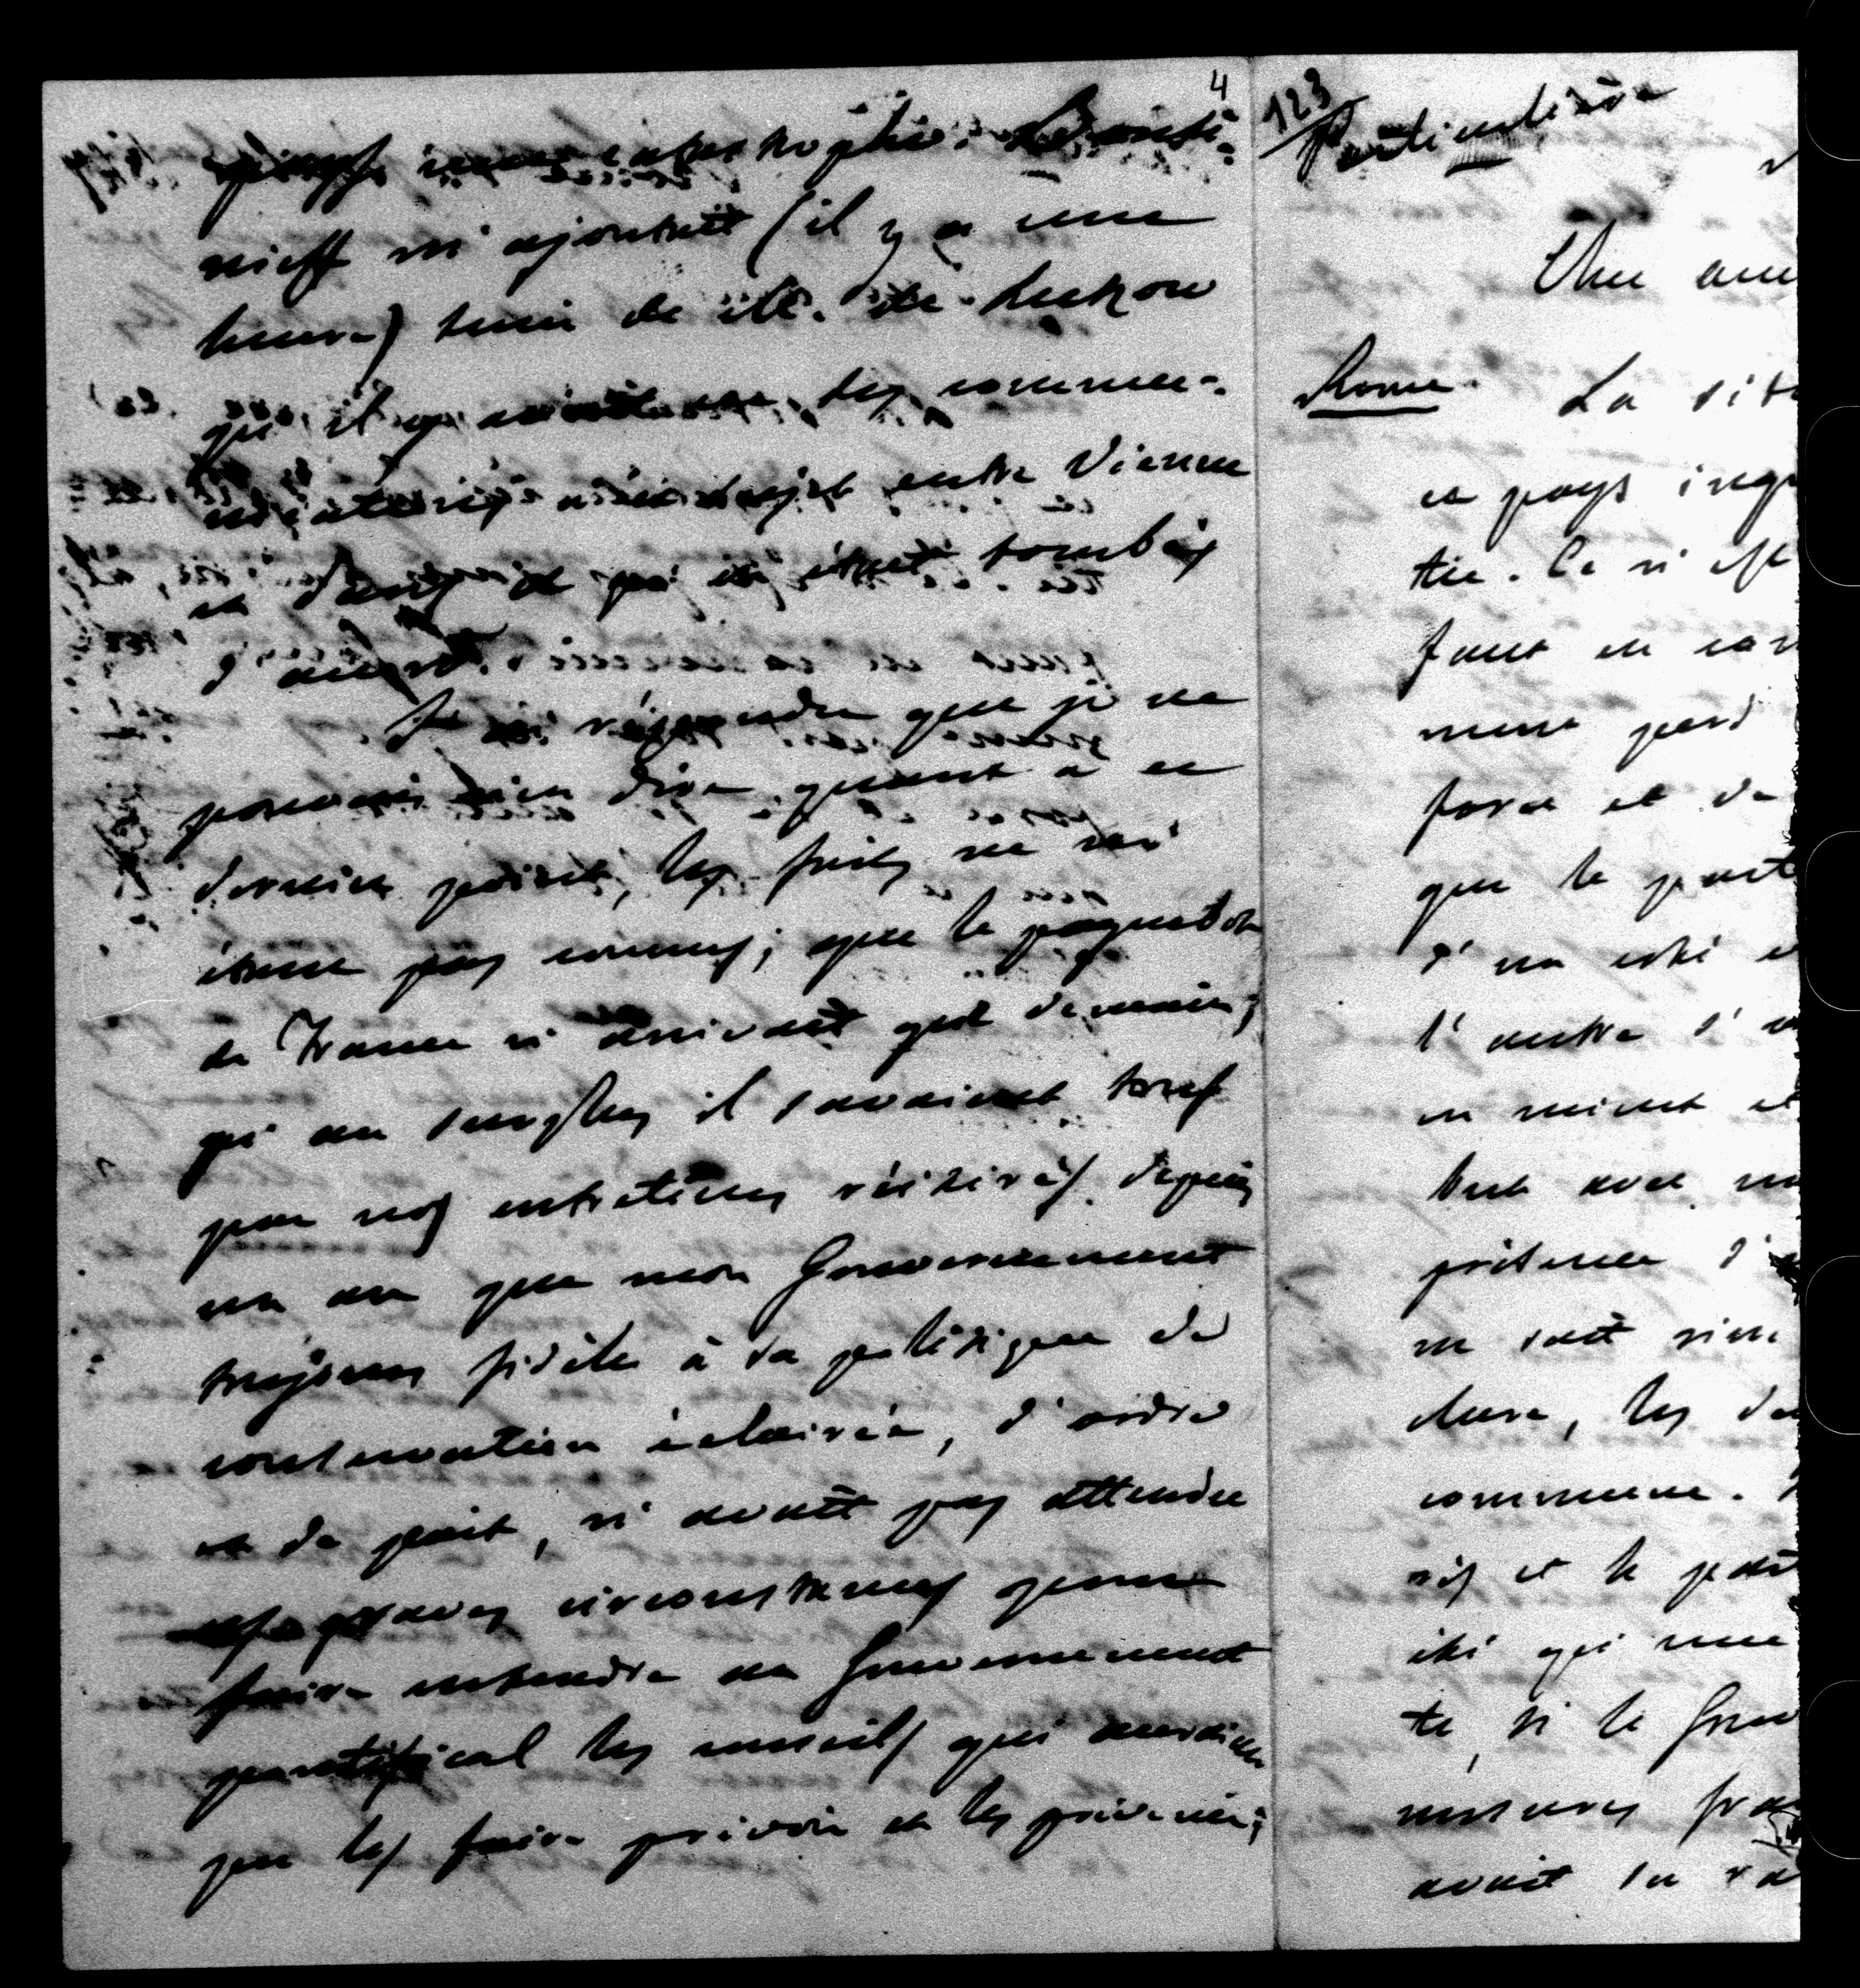 4
nieff m'ajoutait (il y a une
heure) tenir de M. de Lutzow
qu'il y avait eu des commu-
nications à ce sujet entre Vienne
et Paris et qu'ils étaient tombés
d'accord.
Je lui répondis que je ne
pouvais rien dire quant à ce
dernier point, les faits ne m'
étant pas connus; que le paquebot
de France n'arrivait que demain;
qu'au surplus ils savaient tous
par nos entretiens réitérés depuis
un an que mon Gouvernement
toujours fidèle à sa politique de
conservation éclairée, d'ordre
et de paix, n'avait pas attendu
ces graves circonstances pour
faire entendre au Gouvernement
pontifical les conseils qui auraient
pu les faire prévoir et les prévenir;
123
Particulière
Une
Rome. La sit
ce pays inqu
tée. Ce n'est
faut en con
ment perd
force et de
que le part
d'un côté e
l'autre s'
en vient et
but avec
présence d'
ne sait
dure, les
commune.
ris et le part
été qu'une
te, si le Gouv
mesures
avait su